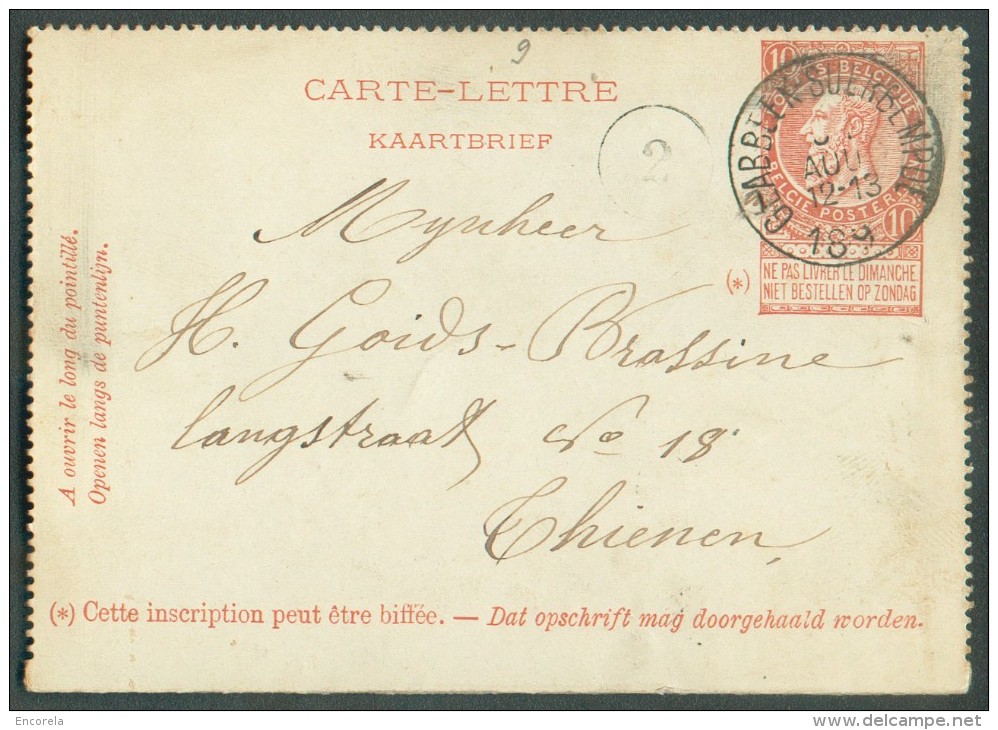 9
CARTE-LETTRE
KAARTBRIEF
2
10
POSTES BELGIQUE
BELGIE POSTERIJEN
10
GLABBEEK-SUERBEMPDE
AOU
12-13
189
(*)
NE PAS LIVRER LE DIMANCHE
NIET BESTELLEN OP ZONDAG
Mynheer
H. Goids-Brassine
langstraat No 18
Thienen
A ouvrir le long du pointillé.
Openen langs de puntenlijn.
(*) Cette inscription peut être biffée. — Dat opschrift mag doorgehaald worden.
Encorela
delcampe.net